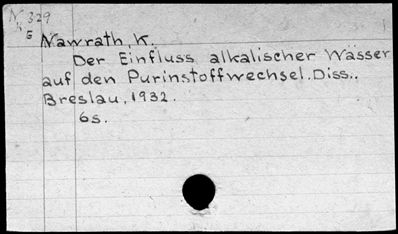 N 329
K 5
Nawrath, K.
Der Einfluss alkalischer Wässer
auf den Purinstoffwechsel. Diss..
Breslau, 1932.
6s.